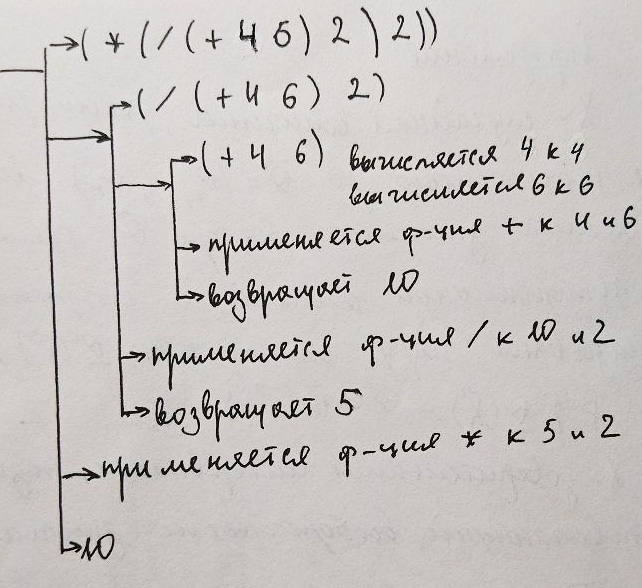 (*(/(+ 4 6) 2) 2))
(/ (+ 4 6) 2)
(+ 4 6) вычисляется 4 к 4
вычисляется 6 к 6
применяется ф-ция + к 4 и 6
возвращает 10
применяется ф-ция / к 10 и 2
возвращает 5
применяется ф-ция * к 5 и 2
10